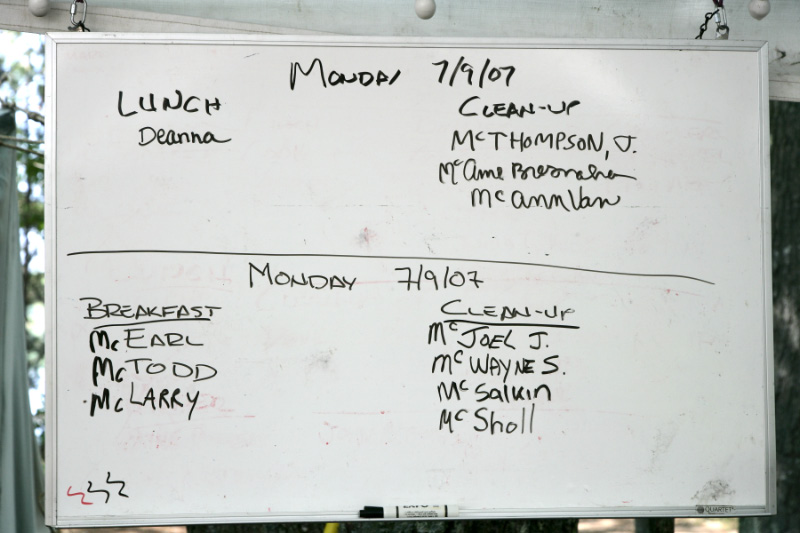 Monday 7/9/07
LUNCH
Deanna
CLEAN-UP
McTHOMPSON, J.
Mc Anne Bresnahan
Mc annVan
Monday 7/9/07
BREAKFAST
Mc EARL
Mc TODD
Mc LARRY
CLEAN-UP
Mc JOEL J.
Mc WAYNE S.
Mc Salkin
Mc Sholl
EXPO
QUARTET